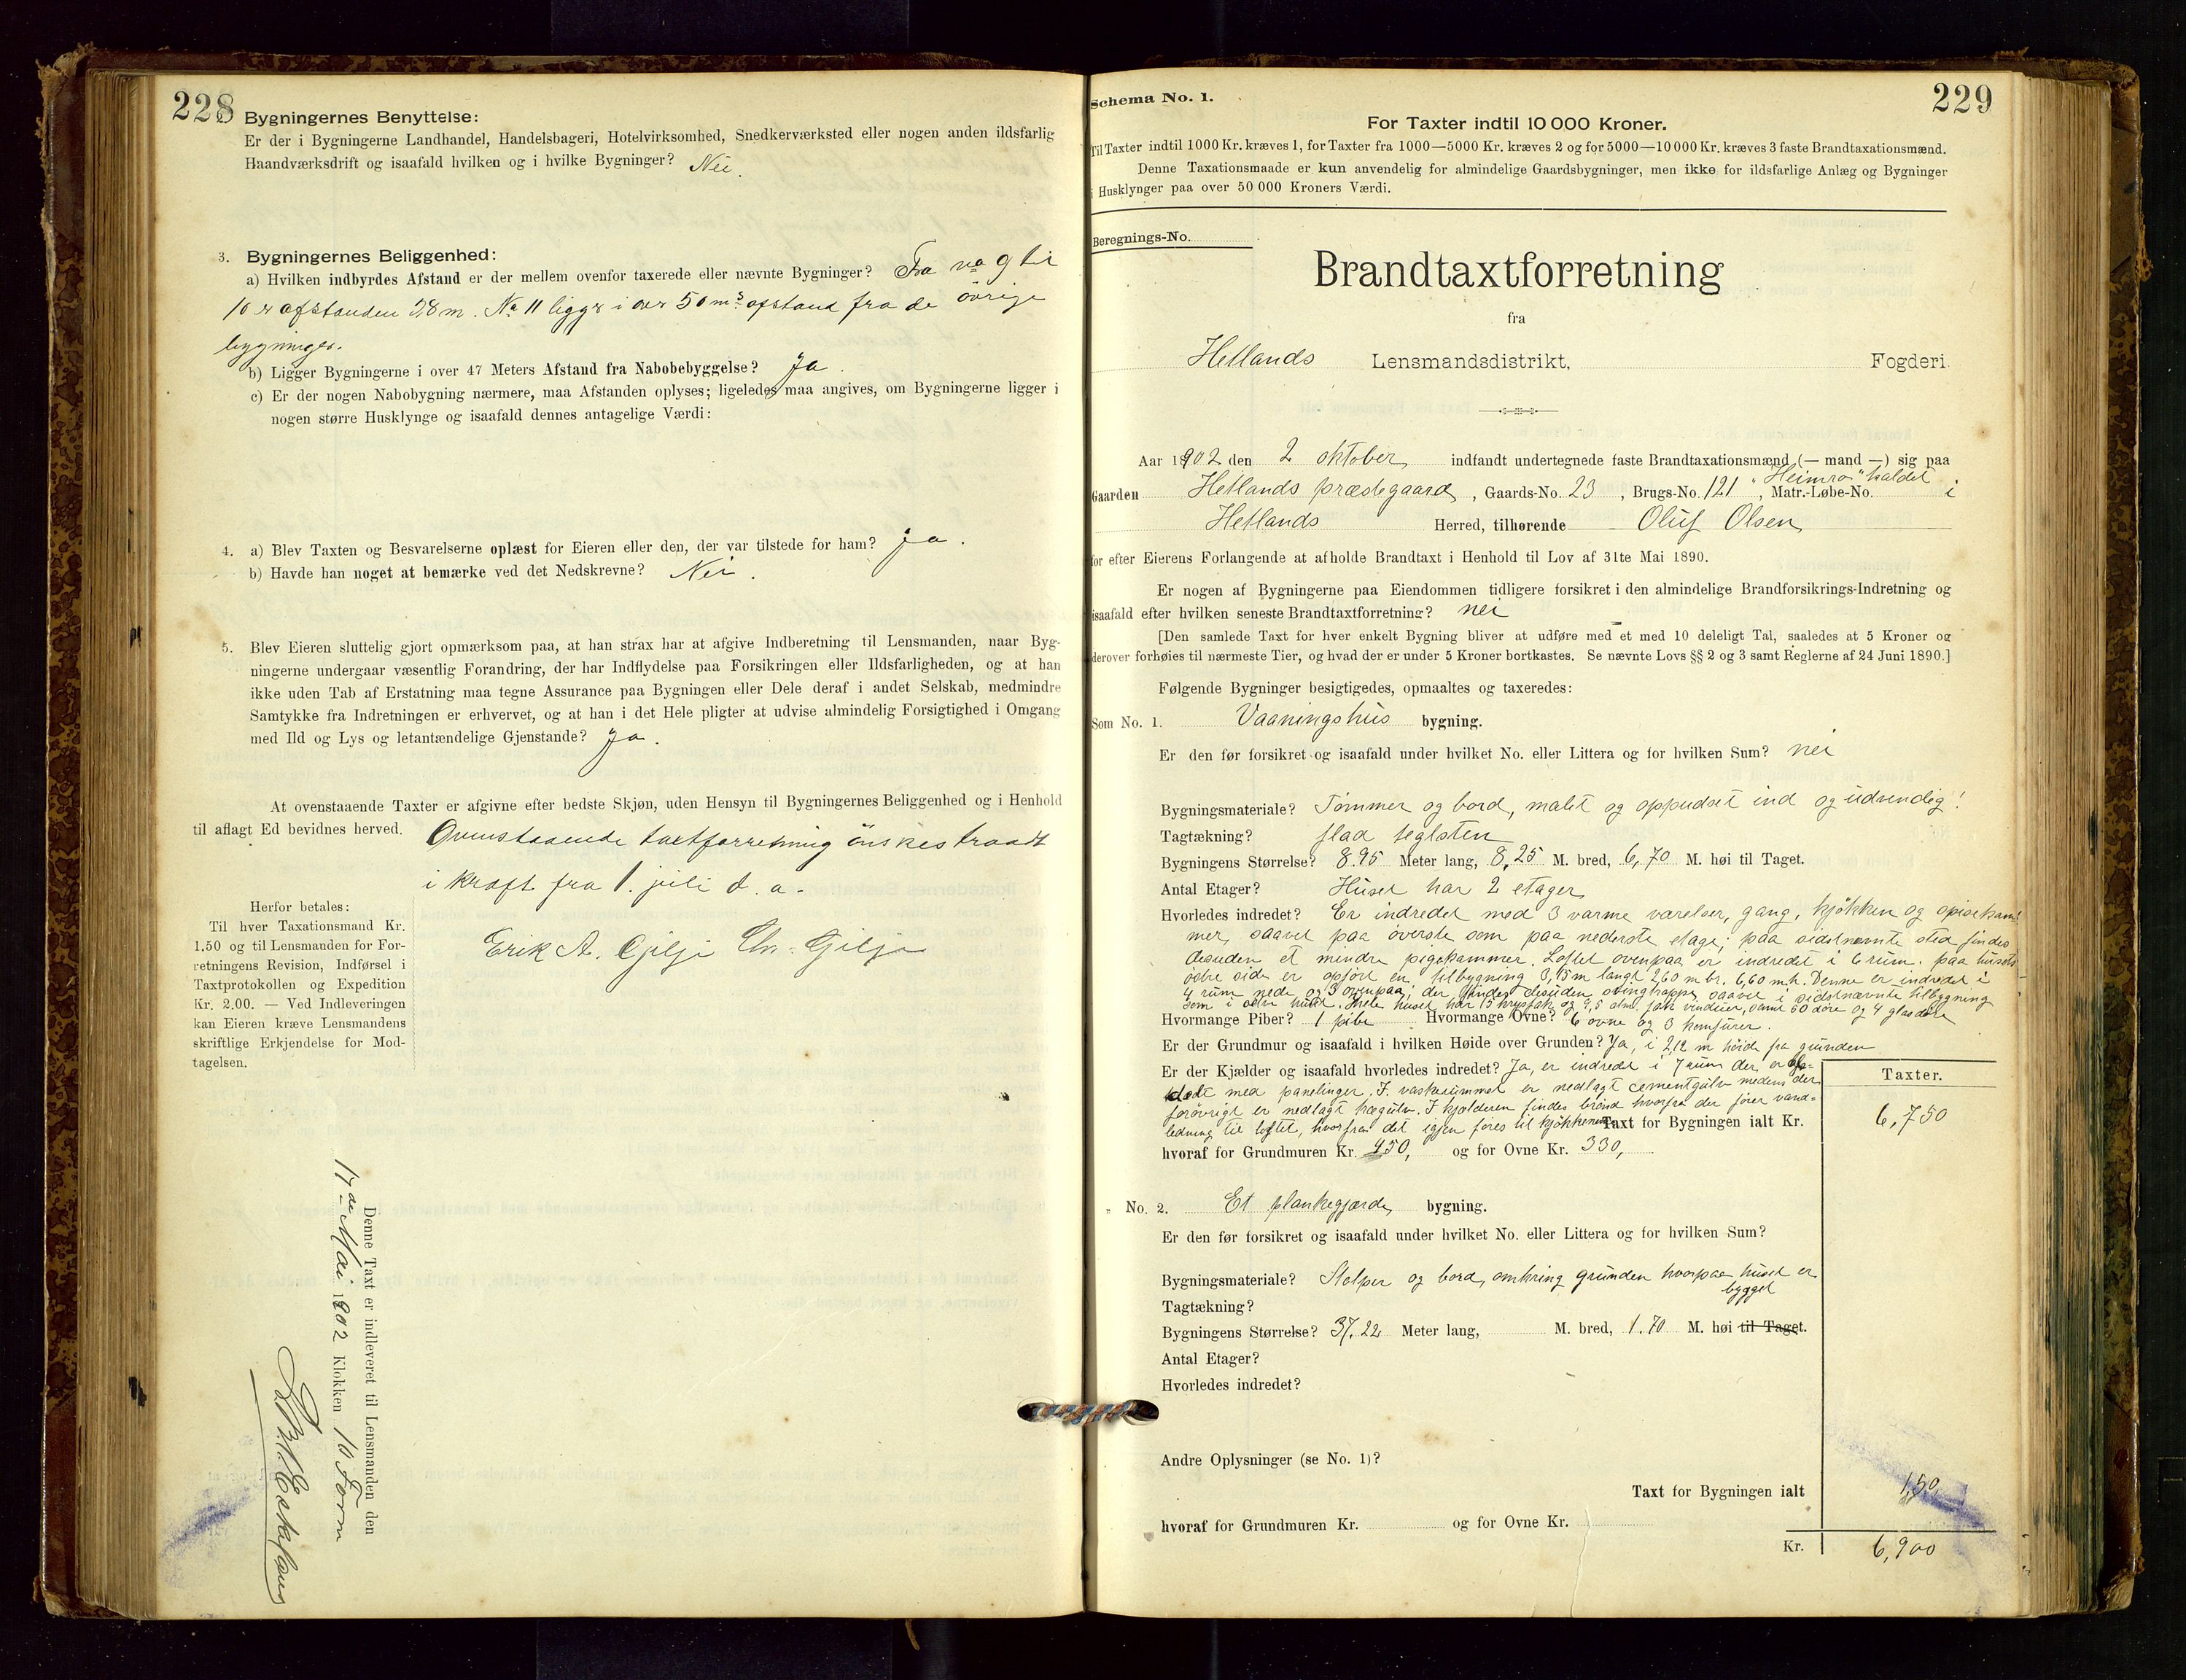 228
Bygningernes Benyttelse:
Er der i Bygningerne Landhandel, Handelsbageri, Hotelvirksomhed, Snedkerværksted eller nogen anden ildsfarlig
Haandværksdrift og isaafald hvilken og i hvilke Bygninger? Nei.
3. Bygningernes Beliggenhed:
a) Hvilken indbyrdes Afstand er der mellem ovenfor taxerede eller nævnte Bygninger? Fra no 9 til
10 er afstanden 28 m. No 11 ligger i over 50 m's afstand fra de övrige
bygninger.
b) Ligger Bygningerne i over 47 Meters Afstand fra Nabobebyggelse? Ja.
c) Er der nogen Nabobygning nærmere, maa Afstanden oplyses; ligeledes maa angives, om Bygningerne ligger i
nogen større Husklynge og isaafald dennes antagelige Værdi:
4. a) Blev Taxten og Besvarelserne oplæst for Eieren eller den, der var tilstede for ham? Ja.
b) Havde han noget at bemærke ved det Nedskrevne? Nei.
5. Blev Eieren sluttelig gjort opmærksom paa, at han strax har at afgive Indberetning til Lensmanden, naar Byg-
ningerne undergaar væsentlig Forandring, der har Indflydelse paa Forsikringen eller Ildsfarligheden, og at han
ikke uden Tab af Erstatning maa tegne Assurance paa Bygningen eller Dele deraf i andet Selskab, medmindre
Samtykke fra Indretningen er erhvervet, og at han i det Hele pligter at udvise almindelig Forsigtighed i Omgang
med Ild og Lys og letantændelige Gjenstande? Ja.
At ovenstaaende Taxter er afgivne efter bedste Skjøn, uden Hensyn til Bygningernes Beliggenhed og i Henhold
til aflagt Ed bevidnes herved. Ovenstaaende taxtforretning önskes traadt
i kraft fra 1. juli d. a.
Erik A. Gilje Chr. Gilje
Herfor betales:
Til hver Taxationsmand Kr.
1.50 og til Lensmanden for For-
retningens Revision, Indførsel i
Taxtprotokollen og Expedition
Kr. 2.00. — Ved Indleveringen
kan Eieren kræve Lensmandens
skriftlige Erkjendelse for Mod-
tagelsen.
Denne Taxt er indleveret til Lensmanden den
17de Mai 1902 Klokken 10 Form
Schema No. 1.
229
For Taxter indtil 10 000 Kroner.
Til Taxter indtil 1000 Kr. kræves 1, for Taxter fra 1000—5000 Kr. kræves 2 og for 5000—10 000 Kr. kræves 3 faste Brandtaxationsmænd.
Denne Taxationsmaade er kun anvendelig for almindelige Gaardsbygninger, men ikke for ildsfarlige Anlæg og Bygninger
i Husklynger paa over 50 000 Kroners Værdi.
Beregnings-No.
Brandtaxtforretning
fra
Hetlands Lensmandsdistrikt, Fogderi
Aar 1902 den 2 oktober indfandt undertegnede faste Brandtaxationsmænd (— mand —) sig paa
Gaarden Hetlands prædegaard, Gaards-No. 23, Brugs-No. 121 "Heimro" kaldet, Matr.-Løbe-No. i
Hetlands Herred, tilhørende Oluf Olsen
for efter Eierens Forlangende at afholde Brandtaxt i Henhold til Lov af 31te Mai 1890.
Er nogen af Bygningerne paa Eiendommen tidligere forsikret i den almindelige Brandforsikrings-Indretning og
isaafald efter hvilken seneste Brandtaxtforretning? nei
[Den samlede Taxt for hver enkelt Bygning bliver at udføre med et med 10 deleligt Tal, saaledes at 5 Kroner og
derover forhøies til nærmeste Tier, og hvad der er under 5 Kroner bortkastes. Se nævnte Lovs §§ 2 og 3 samt Reglerne af 24 Juni 1890.]
Følgende Bygninger besigtigedes, opmaaltes og taxeredes:
Som No. 1. Vaaningshus bygning.
Er den før forsikret og isaafald under hvilket No. eller Littera og for hvilken Sum? nei
Bygningsmateriale? Tömmer og bord, malet og oppudset ind og udvendig!
Tagtækning? flad teglsten
Bygningens Størrelse? 8.95 Meter lang, 8,25 M. bred, 6,70 M. høi til Taget.
Antal Etager? Huset har 2 etager
Hvorledes indredet? Er indredet med 3 varme værelser, gang, kjökken og spisekam-
mer, saavel paa överste som paa nederste etage; paa sidstnævnte sted findes
desuden et mindre pigekammer. Loftet ovenpaa er indredet i 6 rum. paa husets
östre side er opfört en tilbygning 3,15 m langt 2,60 m br. 6,60 m.h. Denne er indredet i
4 rum nede og 3 ovenpaa; der findes desuden svingtrappe saavel i sidstnævnte tilbygning
Hvormange Piber? 1 pibe Hvormange Ovne? 6 ovne og 3 komfürer.
Er der Grundmur og isaafald i hvilken Høide over Grunden? Ja, i 2,12 m höide fra grunden
Er der Kjælder og isaafald hvorledes indredet? Ja, er indredet i 7 rum der er afe-
kledt med panelinger. I vaskerummet er nedlagt cementgulv medens der
forövrigt er nedlagt trægulv. I kjelderen findes brönd hvorfra der förer vand-
ledning til loftet, hvorfra det igjen föres til kjökkenerne Taxt for Bygningen ialt Kr.
Taxter.
6,750
hvoraf for Grundmuren Kr. 450, og for Ovne Kr. 330,
" No. 2. Et plankegjærde bygning.
Er den før forsikret og isaafald under hvilket No. eller Littera og for hvilken Sum?
Bygningsmateriale? Stolper og bord, omkring grunden hvorpaa huset er
bygget
Tagtækning?
Bygningens Størrelse? 37.22 Meter lang, M. bred, 1.70 M. høi til Taget.
Antal Etager?
Hvorledes indredet?
Andre Oplysninger (se No. 1)?
Taxt for Bygningen ialt 150
hvoraf for Grundmuren Kr. og for Ovne Kr.
Kr. 6,900